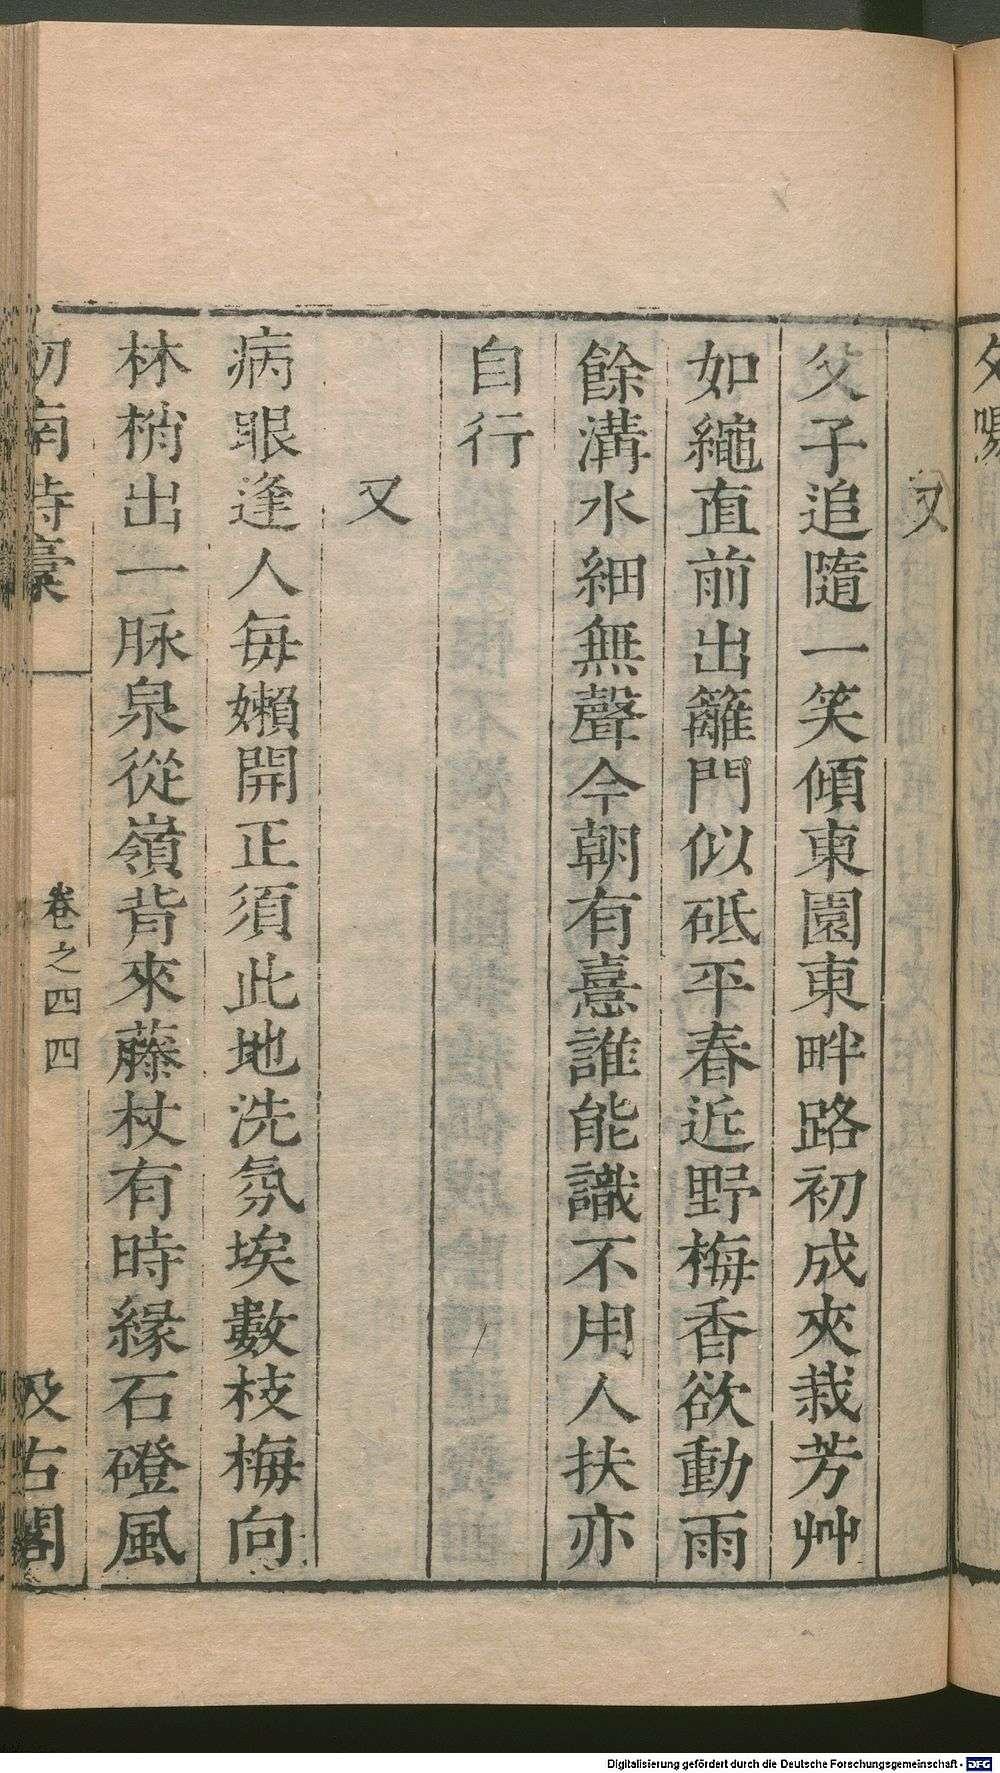 又
父子追隨一笑傾東園東畔路初成夾栽芳艸
如繩直前出籬門似砥平春近野梅香欲動雨
餘溝水細無聲今朝有憙誰能識不用人扶亦
自行
又
病眼逢人每嬾開正須此地洗氛埃數枝梅向
林梢出一脉泉從嶺背來藤杖有時緣石磴風
南詩稾 卷之四四 及古閣
Digitalisierung gefördert durch die Deutsche Forschungsgemeinschaft - DFG